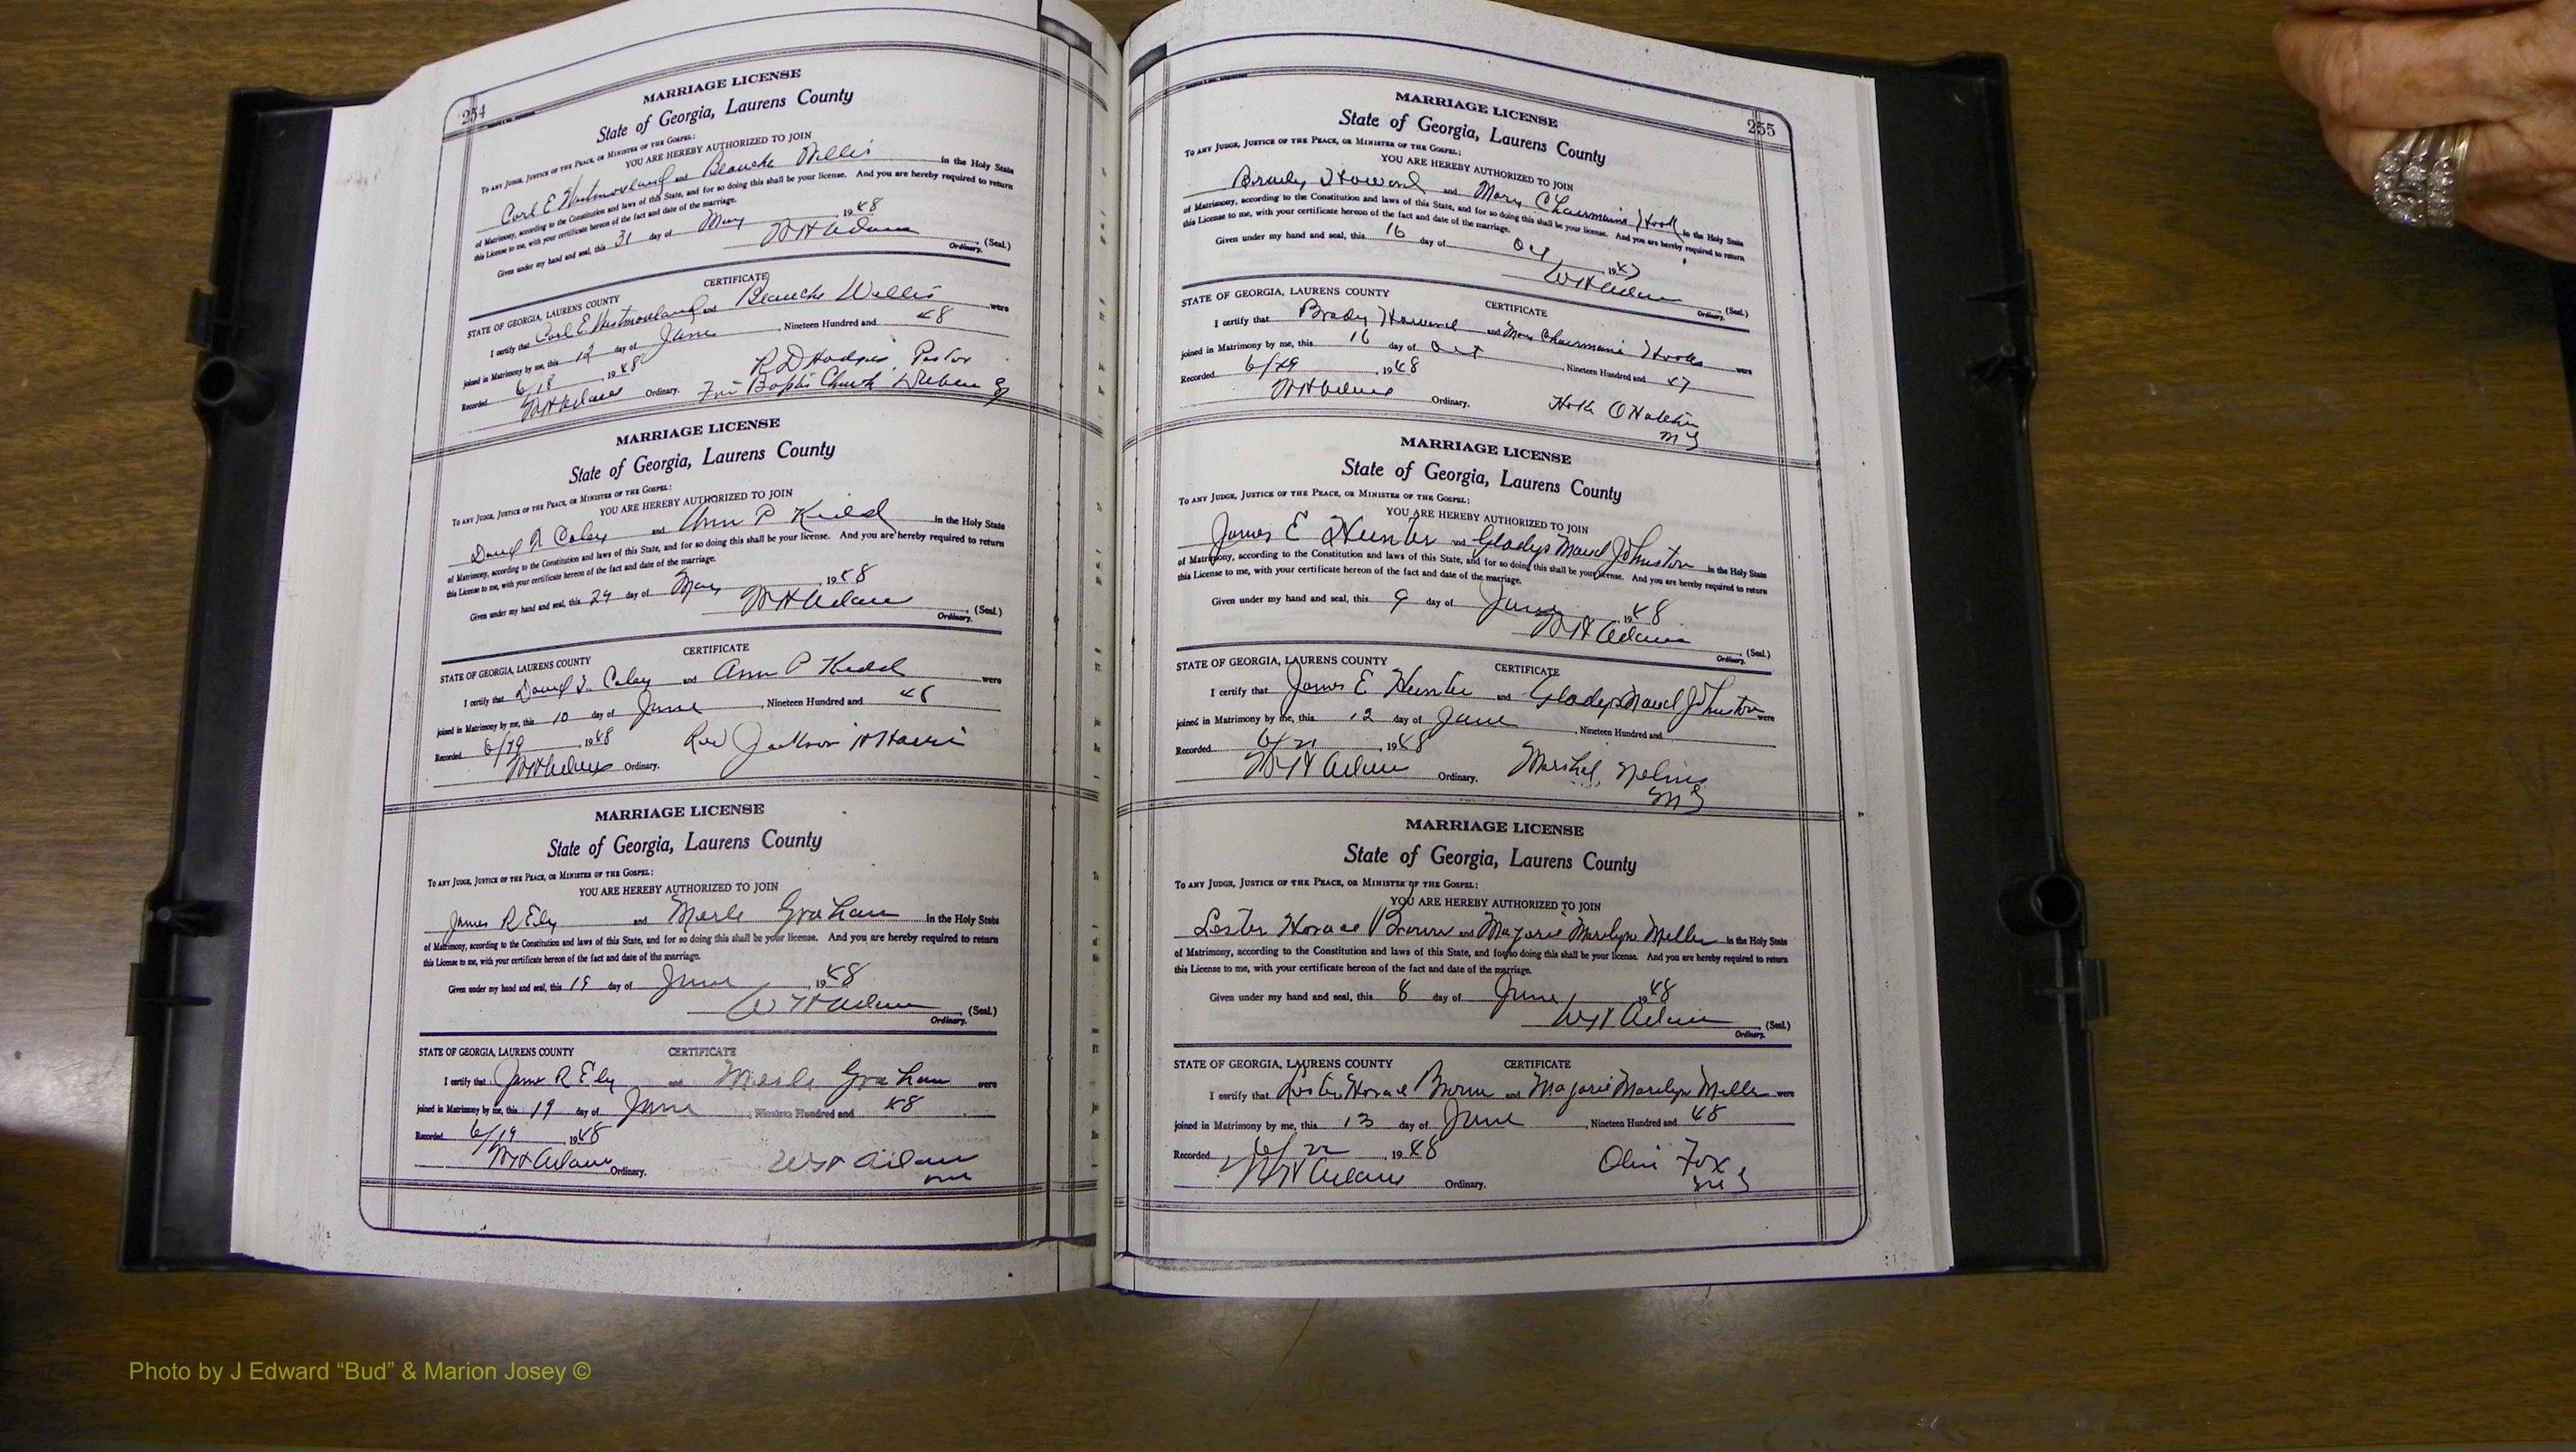 254
MARRIAGE LICENSE
State of Georgia, Laurens County
TO ANY JUDGE, JUSTICE OF THE PEACE, OR MINISTER OF THE GOSPEL:
YOU ARE HEREBY AUTHORIZED TO JOIN
Carl E Westmoreland and Blanche Willis in the Holy State
of Matrimony, according to the Constitution and laws of this State, and for so doing this shall be your license. And you are hereby required to return
this License to me, with your certificate hereon of the fact and date of the marriage.
Given under my hand and seal, this 31 day of May 1948
WH Adams (Seal.)
Ordinary.
CERTIFICATE
STATE OF GEORGIA, LAURENS COUNTY
I certify that Carl E Westmoreland and Blanche Willis were
joined in Matrimony by me, this 12 day of June, Nineteen Hundred and 48
Recorded 6/18, 1948 R D Hodges Pastor
WH Adams Ordinary. Baptist Church
MARRIAGE LICENSE
State of Georgia, Laurens County
TO ANY JUDGE, JUSTICE OF THE PEACE, OR MINISTER OF THE GOSPEL:
YOU ARE HEREBY AUTHORIZED TO JOIN
Coley and Ann P Kidd in the Holy State
of Matrimony, according to the Constitution and laws of this State, and for so doing this shall be your license. And you are hereby required to return
this License to me, with your certificate hereon of the fact and date of the marriage.
Given under my hand and seal, this 29 day of May, 1948
WH Adams (Seal.)
Ordinary.
CERTIFICATE
STATE OF GEORGIA, LAURENS COUNTY
I certify that Coley and Ann P Kidd were
joined in Matrimony by me, this 10 day of June, Nineteen Hundred and 48
Recorded 6/19, 1948 Rev Jackson Harris
WH Adams Ordinary.
MARRIAGE LICENSE
State of Georgia, Laurens County
TO ANY JUDGE, JUSTICE OF THE PEACE, OR MINISTER OF THE GOSPEL:
YOU ARE HEREBY AUTHORIZED TO JOIN
James R Ely and Merle Graham in the Holy State
of Matrimony, according to the Constitution and laws of this State, and for so doing this shall be your license. And you are hereby required to return
this License to me, with your certificate hereon of the fact and date of the marriage.
Given under my hand and seal, this 19 day of June, 1948
WH Adams (Seal.)
Ordinary.
STATE OF GEORGIA, LAURENS COUNTY CERTIFICATE
I certify that James R Ely and Merle Graham were
joined in Matrimony by me, this 19 day of June, Nineteen Hundred and 48
Recorded 6/19, 1948
WH Adams Ordinary. WH Adams
255
MARRIAGE LICENSE
State of Georgia, Laurens County
TO ANY JUDGE, JUSTICE OF THE PEACE, OR MINISTER OF THE GOSPEL:
YOU ARE HEREBY AUTHORIZED TO JOIN
Brady Howard and Mary Charmaine Hooks in the Holy State
of Matrimony, according to the Constitution and laws of this State, and for so doing this shall be your license. And you are hereby required to return
this License to me, with your certificate hereon of the fact and date of the marriage.
Given under my hand and seal, this 16 day of Oct, 1947
WH Adams (Seal.)
Ordinary.
STATE OF GEORGIA, LAURENS COUNTY CERTIFICATE
I certify that Brady Howard and Mary Charmaine Hooks were
joined in Matrimony by me, this 16 day of Oct, Nineteen Hundred and 47
Recorded 6/19, 1948
WH Adams Ordinary.
MG
MARRIAGE LICENSE
State of Georgia, Laurens County
TO ANY JUDGE, JUSTICE OF THE PEACE, OR MINISTER OF THE GOSPEL:
YOU ARE HEREBY AUTHORIZED TO JOIN
James E Hunter and Gladys Maud Johnston in the Holy State
of Matrimony, according to the Constitution and laws of this State, and for so doing this shall be your license. And you are hereby required to return
this License to me, with your certificate hereon of the fact and date of the marriage.
Given under my hand and seal, this 9 day of June, 1948
WH Adams (Seal.)
Ordinary.
STATE OF GEORGIA, LAURENS COUNTY CERTIFICATE
I certify that James E Hunter and Gladys Maud Johnston were
joined in Matrimony by me, this 12 day of June, Nineteen Hundred and
Recorded 6/21, 1948
WH Adams Ordinary. Marshal Nelms
MG
MARRIAGE LICENSE
State of Georgia, Laurens County
TO ANY JUDGE, JUSTICE OF THE PEACE, OR MINISTER OF THE GOSPEL:
YOU ARE HEREBY AUTHORIZED TO JOIN
Lester Horace Brown and Marjorie Marilyn Miller in the Holy State
of Matrimony, according to the Constitution and laws of this State, and for so doing this shall be your license. And you are hereby required to return
this License to me, with your certificate hereon of the fact and date of the marriage.
Given under my hand and seal, this 8 day of June, 1948
WH Adams (Seal.)
Ordinary.
STATE OF GEORGIA, LAURENS COUNTY CERTIFICATE
I certify that Lester Horace Brown and Marjorie Marilyn Miller were
joined in Matrimony by me, this 13 day of June, Nineteen Hundred and 48
Recorded 6/22, 1948
WH Adams Ordinary. Fox
MG
Photo by J Edward “Bud” & Marion Josey ©